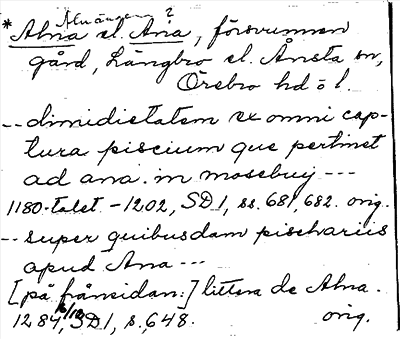 Almängen ?
* Alna el. Ana, försvunnen
gård, Längbro el. Ånsta sn,
Örebro hd o l.
-- dimidietatem ex omni cap-
tura piscium que pertinet
ad ana. in mosebuy ---
1180-talet - 1202, SD 1, ss. 681, 682. orig.
-- super quibusdam pischariis
apud Ana ---
[på frånsidan:] littera de Alna.
1284 6/10, SD 1, s. 648. orig.